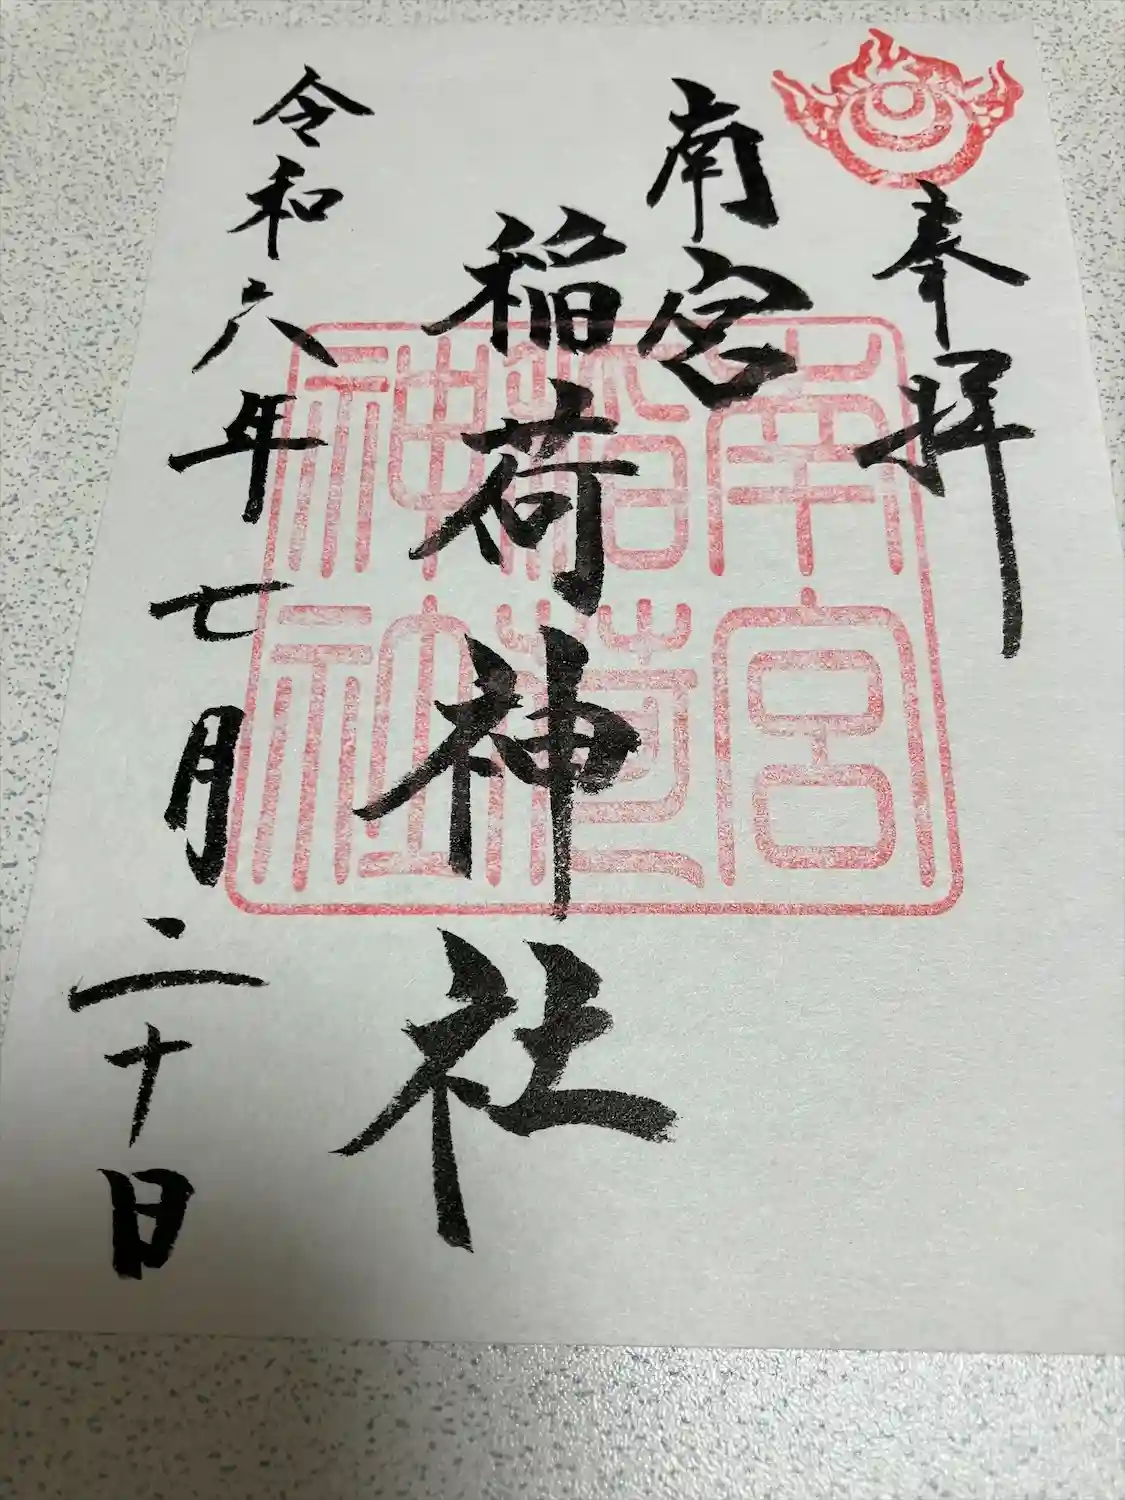 奉拝
南宮
稲荷神社
令和六年七月二十日
南宮
稲荷
神社